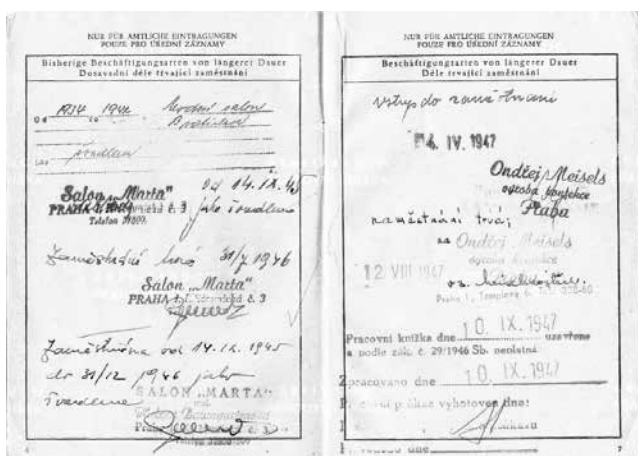 NUR FÜR AMTLICHE EINTRAGUNGEN
POUZE PRO ÚŘEDNÍ ZÁZNAMY
Bisherige Beschäftigungsarten von längerer Dauer
Dosavadní déle trvající zaměstnání
1934 1944 Modní salon
Bratislava
švadlena
Salon „Marta"
od 14.IX.45
PRAHA č. 3
jako švadlena
Telefon
Zaměstnání 31/7 1946
Salon „Marta"
PRAHA č. 3
Zaměstnána od 14.IX.1945
do 31/12 1946 jako
švadlena
SALON „MARTA"
6
NUR FÜR AMTLICHE EINTRAGUNGEN
POUZE PRO ÚŘEDNÍ ZÁZNAMY
Beschäftigungsarten von längerer Dauer
Déle trvající zaměstnání
vstup do zaměstnání
4. IV. 1947
Ondřej Meisels
výroba konfekce
Praha
zaměstnání trvá;
Ondřej Meisels
výroba konfekce
12 VIII 1947
Praha I., Templová 6,
Pracovní knížka dne 10. IX. 1947 uzavřena
a podle zák. č. 29/1946 Sb. neplatná
Zpracováno dne 10. IX. 1947
Pracovní průkaz vyhotoven dne:
7